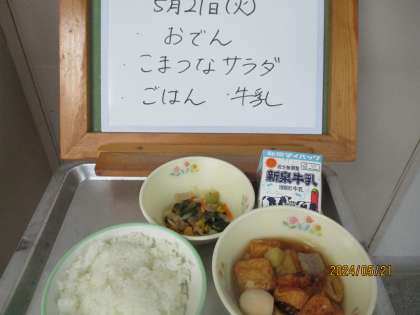 5月21日(火)
おでん
・こまつなサラダ
・ごはん 牛乳
新泉牛乳
2024/05/21